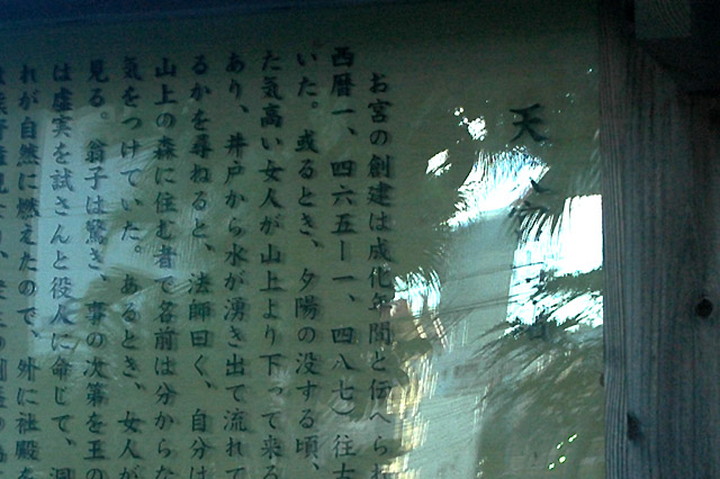 天
お宮の創建は成化年間と伝へられ
西暦一、四六五ー一、四八七)往古
いた。或るとき、夕陽の没する頃、
た気高い女人が山上より下って来る
あり、井戸から水が湧き出て流れて
るかを尋ねると、法師曰く、自分は
山上の森に住む者で名前は分からな
気をつけていた。あるとき、女人が
見る。翁子は驚き、事の次第を王の
は虚実を試さんと役人に命じて、洞
れが自然に燃えたので、外に社殿を